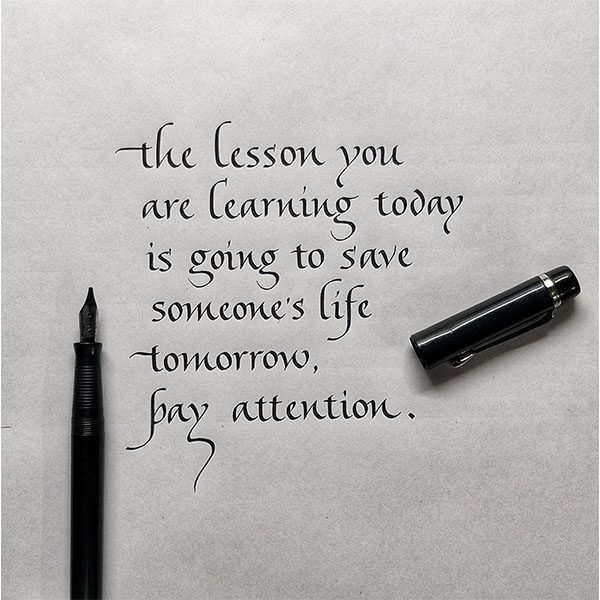 the lesson you
are learning today
is going to save
someone's life
tomorrow,
pay attention.